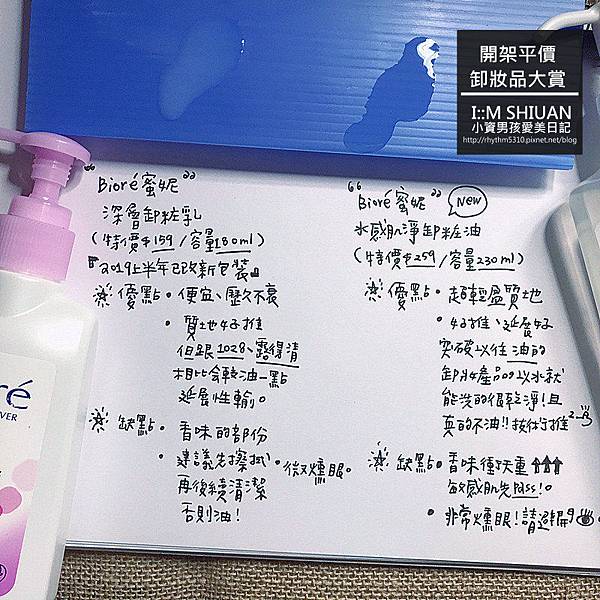 開架平價
卸妝品大賞
I::M SHIUAN
小資男孩愛美日記
http://rhythm5310.pixnet.net/blog
"Bioré蜜妮"
深層卸粧乳
(特價$159/容量180ml)
『2019上半年已改新包裝』
優點・便宜、歷久不衰
・質地好推
但跟1028、露得清
相比會較油一點
延展性輸。
缺點・香味的部份
・建議先擦拭
再後續清潔
否則油!
・微燻眼。
"Bioré蜜妮" New
水感肌淨卸粧油
(特價$259/容量230ml)
優點・超輕盈質地
・好推、延展好
突破以往油的
卸妝產品以水就
能洗的很乾淨!且
真的不油!!技術推
缺點・香味衝天重↑↑↑
敏感肌先pass!。
・非常燻眼!請避開
oré
VER